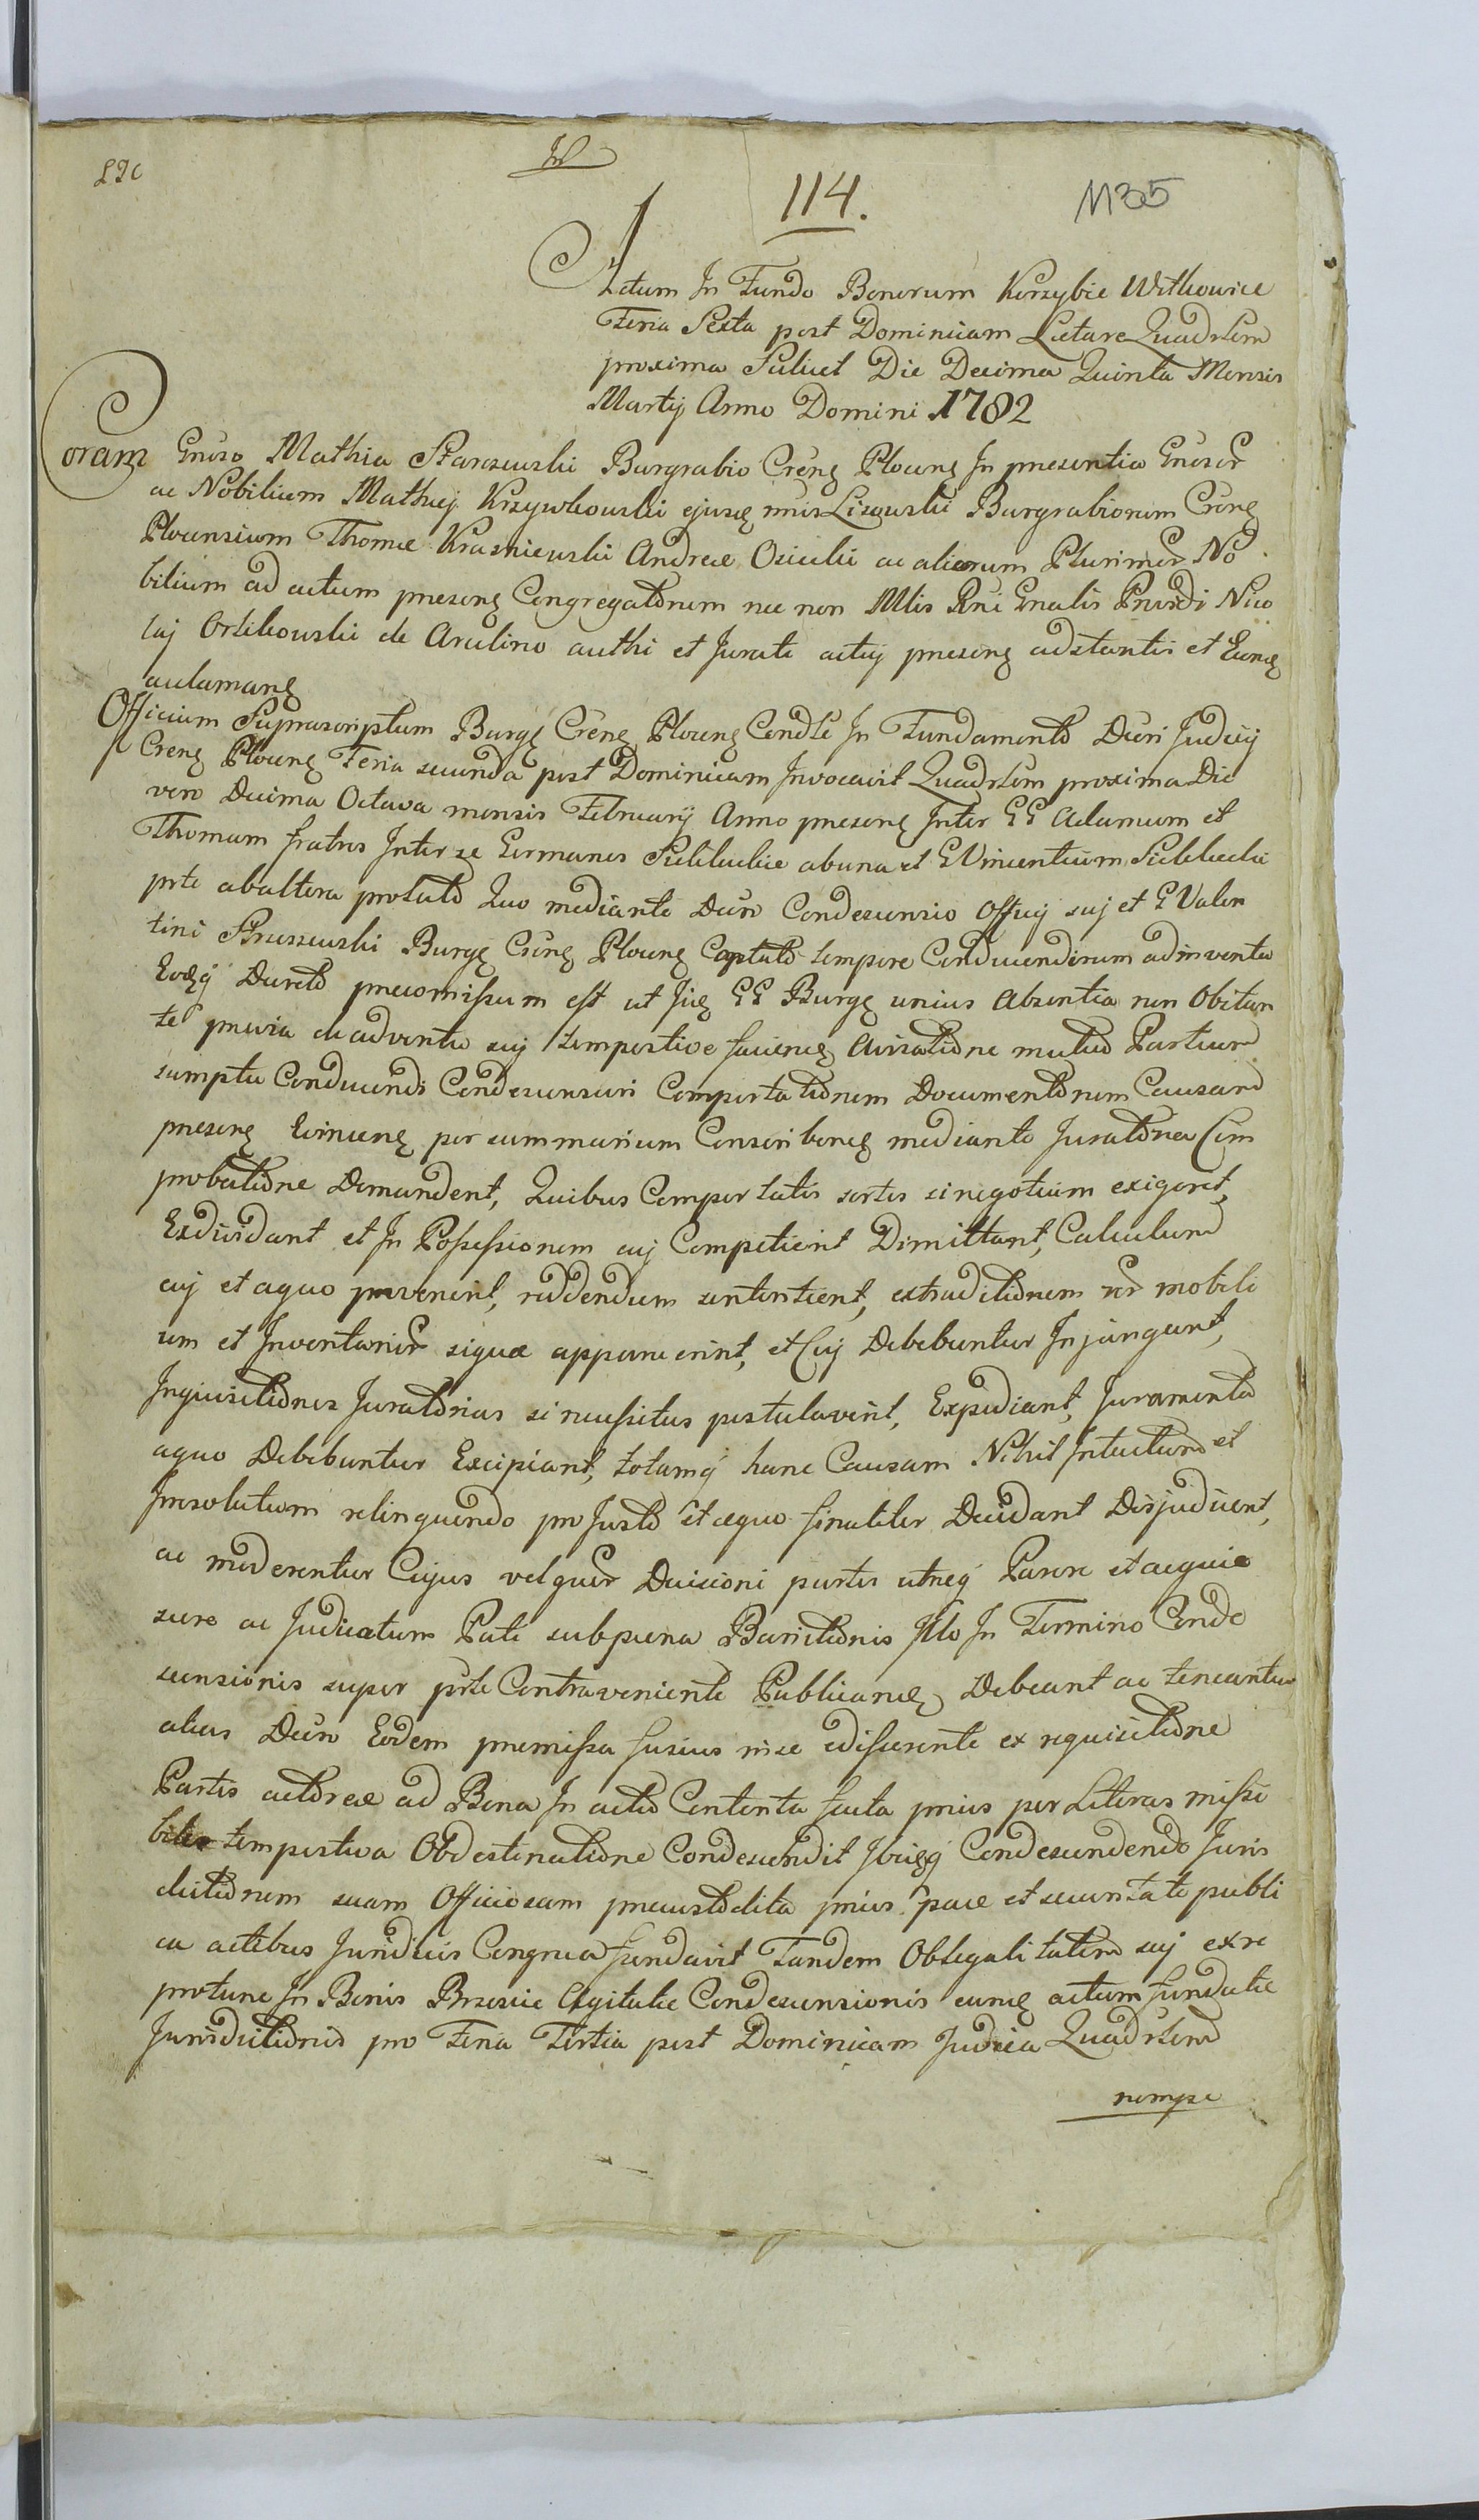 114.
1135
Actum In Fundo Bonorum Korzybie Witkowice
Feria Sexta post Dominicam Lætare Quadrlem
proxima Scilicet Die Decima Quinta Mensis
Martij Anno Domini 1782
Coram Gnoso Mathia Starozewski Burgrabio Crens Plocens In præsentia Gnosor
ac Nobilium Mathæj Krzywkowski ejusq Lisowski Burgrabiorum Crens
Plocensium Thomæ Krasniewski Andreæ Osiecki ac aliorum Plurimor No
bilium ad actum præsens Congregatorum nec non Mlis Rni Gnalis Provdi Nico
laj Orlikowski de Arcelino authi et Jurati actuj præsens adstantis et Eunds
aclamans
Officium Suprascriptum Burgs Crens Plocens Condle In Fundamento Dcri Judicij
Crens Plocens Feria secunda post Dominicam Invocavit Quadrlem proxima Die
vero Decima Octava mensis Februarij Anno præsens Inter GG Adamum et
Thomam fratres Inter se Germanos abuna et G Vincentium
prte abaltera prolato Quo mediante Dcro Condescensio Officij suj et G Valen
tini Burgs Crens Plocens Captato tempore Conducendorum adinventa
Eodq Decreto præcomissum est ut GG Burgs unius Absentia non Obstan
te prævia de adventu suj tempestive faciens Avisatione mutuo Partium
sumptu Conducendi Condescensuri Comportationem Documentorum Causam
præsens Evincens per summarium Conscribens mediante Juratoria Com
probatione Demandent, Quibus Comportatis sortes si negotium exigeret,
Exdividant et In Possessionem cuj Competierit Dimittant, Calculum
cuj et aquo provenerit, reddendum sententient, extraditionem rer mobili
um et Inventarior siquæ apparuerint, et Cuj Debebuntur Injungant,
Inquisitiones Juratorias si necessitas postulaverit, Expediant, Juramenta
aquo Debebuntur Excipiant, totamq hanc Causam Nihil Intactum et
Inresolutum relinquendo pro Justo et æquo finaliter Decidant Disjudicent,
ac moderentur Cujus vel quor Decisioni partes utræq Parere et acquie
scere ac Judicatum Pati subpæna Banitionis In Termino Conde
scensionis super prte Contraveniente Publicands Debeant ac teneantur
alias Dcro Eodem præmissa fusius in se edisserente ex requisitione
Partis actoreæ ad Bona In actu Contenta facta prius per Literas missi
biles tempestiva Obdestinatione Condescendit Ibiqq Condescendendo Juris
dictionem suam Officiosam præcustodita prius pace et securitate publi
ca actibus Juridicis Congrua fundavit Tandem Oblegalitatem suj exre
protunc In Bonis Brzescie Agitatæ Condescensionis eunds actum fundatæ
Jurisdictionis pro Feria Tertia post Dominicam Judica Quadrlem
nempe